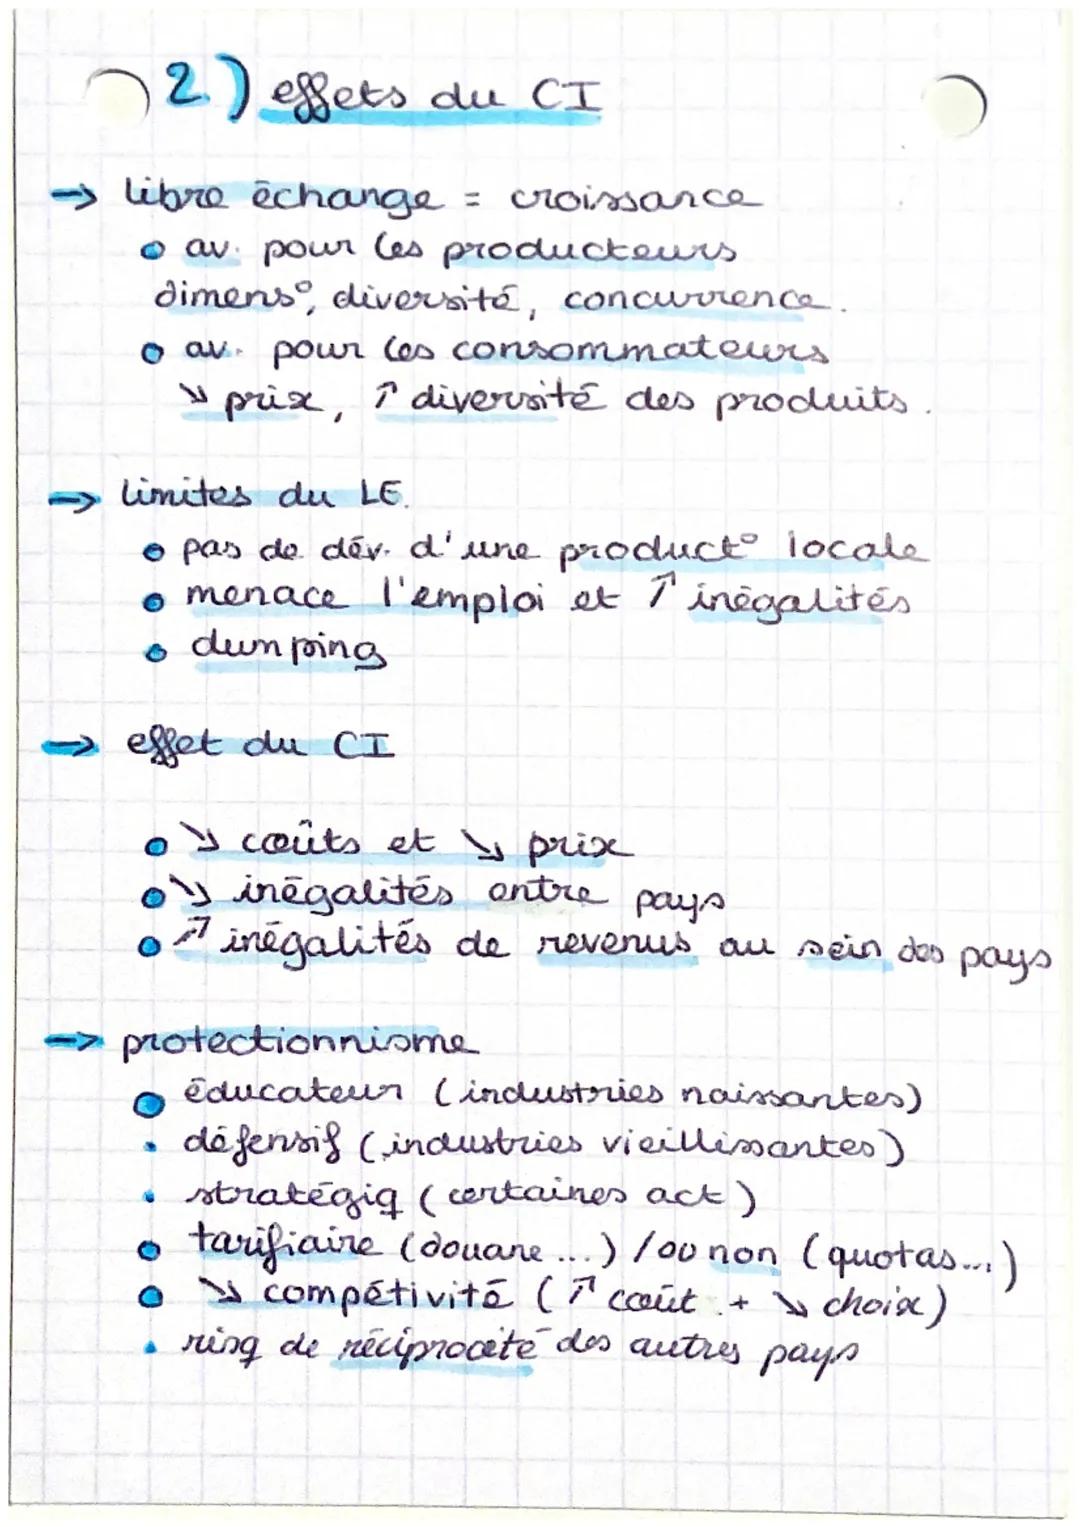 2.) effets du CI
→ libre échange = croissance
• av. pour les producteurs
dimens°, diversité, concurrence.
• av. pour les consommateurs
↘ prix, ↗ diversité des produits.
→ limites du LE.
• pas de dév. d'une product° locale
• menace l'emploi et ↗ inégalités
• dumping
→ effet du CI
• ↘ coûts et ↘ prix
• ↘ inégalités entre pays
• ↗ inégalités de revenus au sein des pays
→ protectionnisme
• éducateur (industries naissantes)
• défensif (industries vieillissantes)
• stratégiq (certaines act)
• tarifiaire (douane...) / ou non (quotas...)
• ↘ compétivité (↗ coût + ↘ choix)
• risq de réciprocité des autres pays